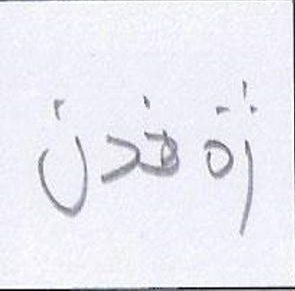 زة فدن